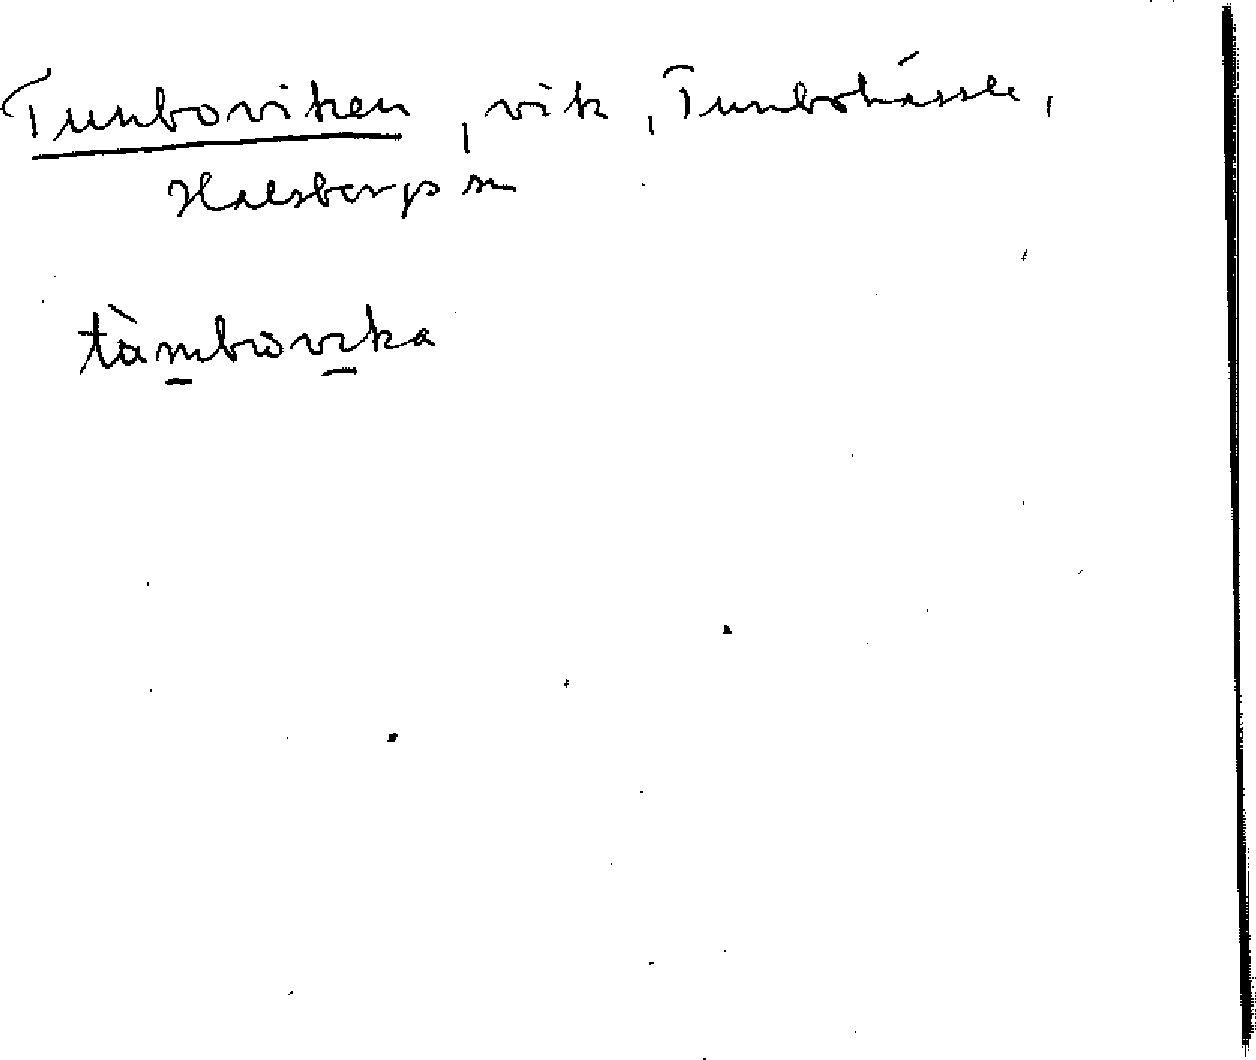 Tunboviken, vik, Tunbohässle,
Halsbergs sn
tàmbovika